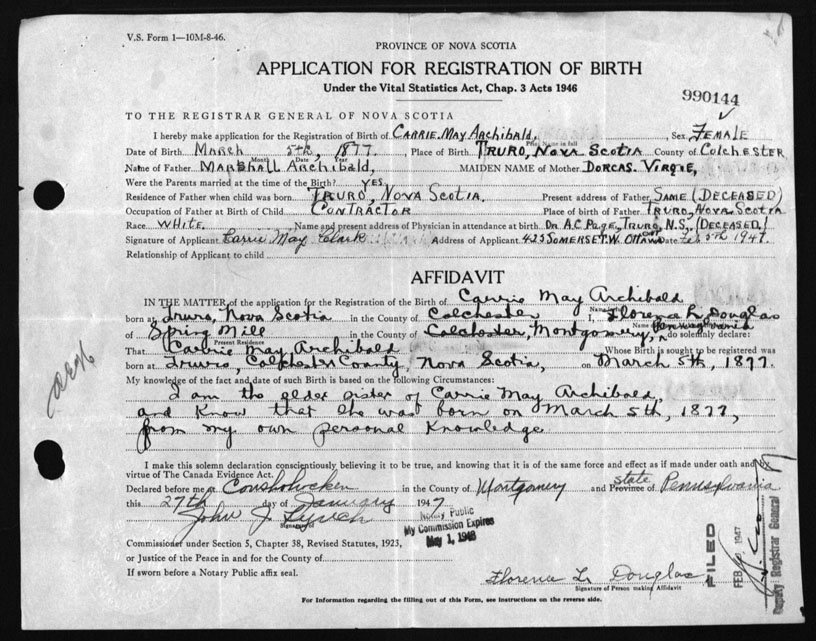 V.S. Form 1—10M-8-46.
PROVINCE OF NOVA SCOTIA
APPLICATION FOR REGISTRATION OF BIRTH
Under the Vital Statistics Act, Chap. 3 Acts 1946
990144
TO THE REGISTRAR GENERAL OF NOVA SCOTIA
I hereby make application for the Registration of Birth of CARRIE MAY ARCHIBALD, Sex FEMALE
Print Name in full
Date of Birth MARCH 5th, 1877. Place of Birth TRURO, NOVA SCOTIA County of COLCHESTER
Month Date Year
Name of Father MARSHALL ARCHIBALD, MAIDEN NAME of Mother DORCAS VIRGIE,
Were the Parents married at the time of the Birth? YES
Residence of Father when child was born TRURO, NOVA SCOTIA. Present address of Father SAME (DECEASED)
Occupation of Father at Birth of Child CONTRACTOR Place of birth of Father TRURO, NOVA SCOTIA
Race WHITE. Name and present address of Physician in attendance at birth DR A.C. PAGE, TRURO, N.S. (DECEASED)
Signature of Applicant Carrie May Clark Address of Applicant 423 SOMERSET.W. OTTAWA ONT Date Feb 5th 1947.
Relationship of Applicant to child
AFFIDAVIT
IN THE MATTER of the application for the Registration of the Birth of Carrie May Archibald
born at Truro, Nova Scotia in the County of Colchester I, Florence L. Douglas
Name in full
of Spring Mill in the County of Colchester, Montgomery, Pennsylvania do solemnly declare:
Present Residence Name
That Carrie May Archibald Whose Birth is sought to be registered was
born at Truro, Colchester County, Nova Scotia, on March 5th, 1877.
My knowledge of the fact and date of such Birth is based on the following Circumstances:
I am the elder sister of Carrie May Archibald,
and know that she was born on March 5th, 1877,
from my own personal knowledge.
I make this solemn declaration conscientiously believing it to be true, and knowing that it is of the same force and effect as if made under oath and by
virtue of The Canada Evidence Act.
Declared before me at Conshohocken in the County of Montgomery and state Province of Pennsylvania
this 27th day of January 1947
John J Lynch
Notary Public
My Commission Expires
May 1, 1948
Commissioner under Section 5, Chapter 38, Revised Statutes, 1923,
or Justice of the Peace in and for the County of
If sworn before a Notary Public affix seal.
Florence L. Douglas
Signature of Person making Affidavit
FILED
FEB 1947
Deputy Registrar General
For Information regarding the filling out of this Form, see instructions on the reverse side.